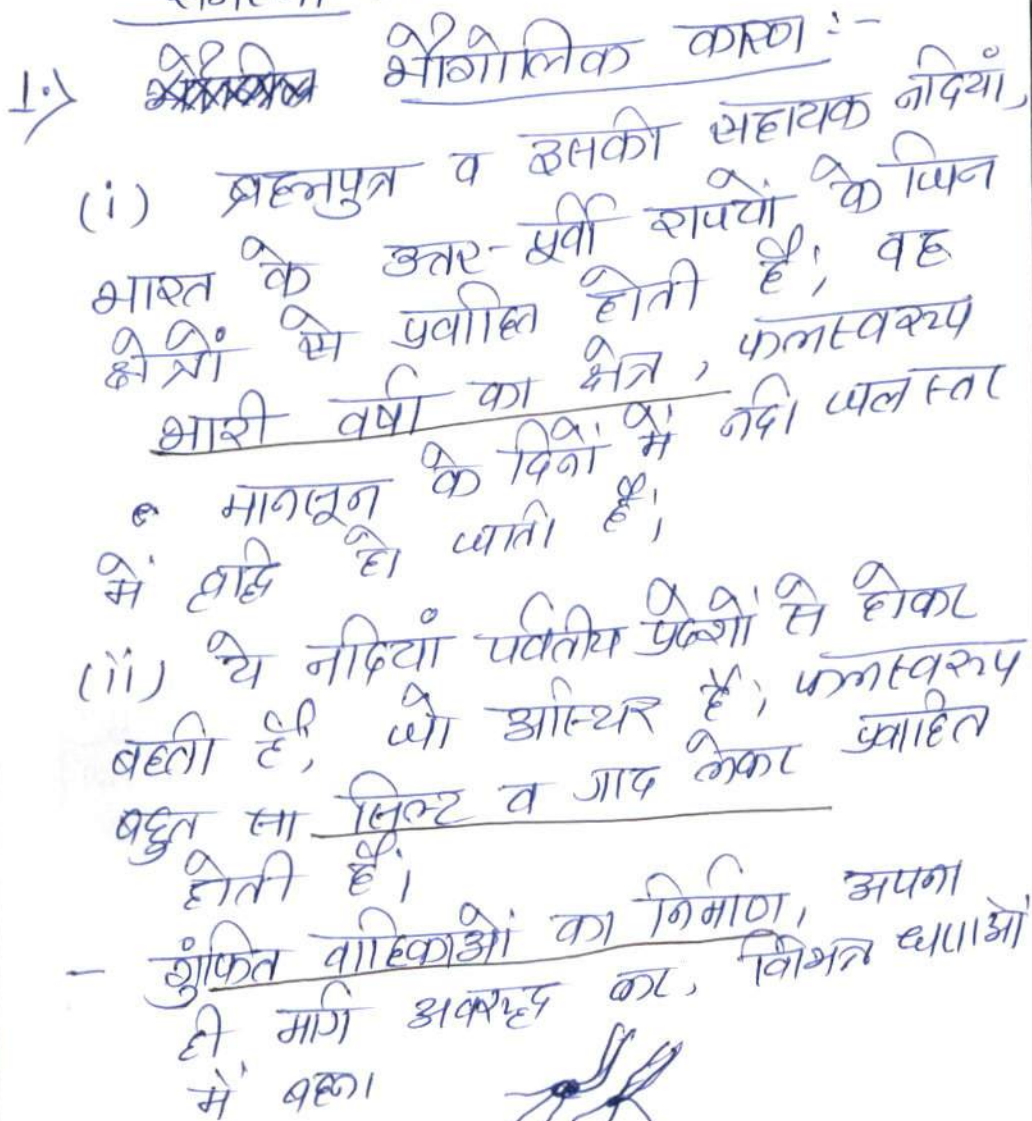 1.) भौगोलिक कारण :-
(i) ब्रह्मपुत्र व इसकी सहायक नदियाँ,
भारत के उत्तर-पूर्वी राज्यों के जिन
क्षेत्रों से प्रवाहित होती है, वह
भारी वर्षा का क्षेत्र, फलस्वरूप
मानसून के दिनों में नदी जल स्तर
में वृद्धि हो जाती है;
(ii) ये नदियां पर्वतीय प्रदेशों से होकर
बहती है, जो अस्थिर है; फलस्वरूप
बहुत सा सिल्ट व गाद लेकर प्रवाहित
होती है।
- गुंफित वाहिकाओं का निर्माण, अपना
ही मार्ग अवरुद्ध कर, विभिन्न धाराओं
में बहना